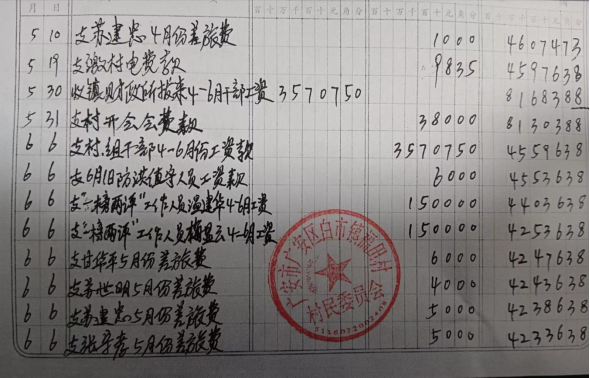 月 日 百十万千百十元角分 百十万千百十元角分 百十万千百十元角分
5 10 支苏建忠4月份差旅费 1000 4607473
5 19 支激村电费款 9835 4597638
5 30 收镇财政所拨来4-6月干部工资 3570750 8168388
5 31 支村开会会费款 38000 8130388
6 6 支村.组干部4-6月份工资款 3570750 4559638
6 6 支6月1日防洪值守人员工资款 6000 4553638
6 6 支"一榜两评"工作人员温建华4-6月工资 150000 4403638
6 6 支"一榜两评"工作人员 4-6月工资 150000 4253638
6 6 支甘华平5月份差旅费 6000 4247638
6 6 支苏世明5月份差旅费 4000 4243638
6 6 支苏建忠5月份差旅费 5000 4238638
6 6 支张 5月份差旅费 5000 4233638
广安市广安区白市镇 村
村民委员会